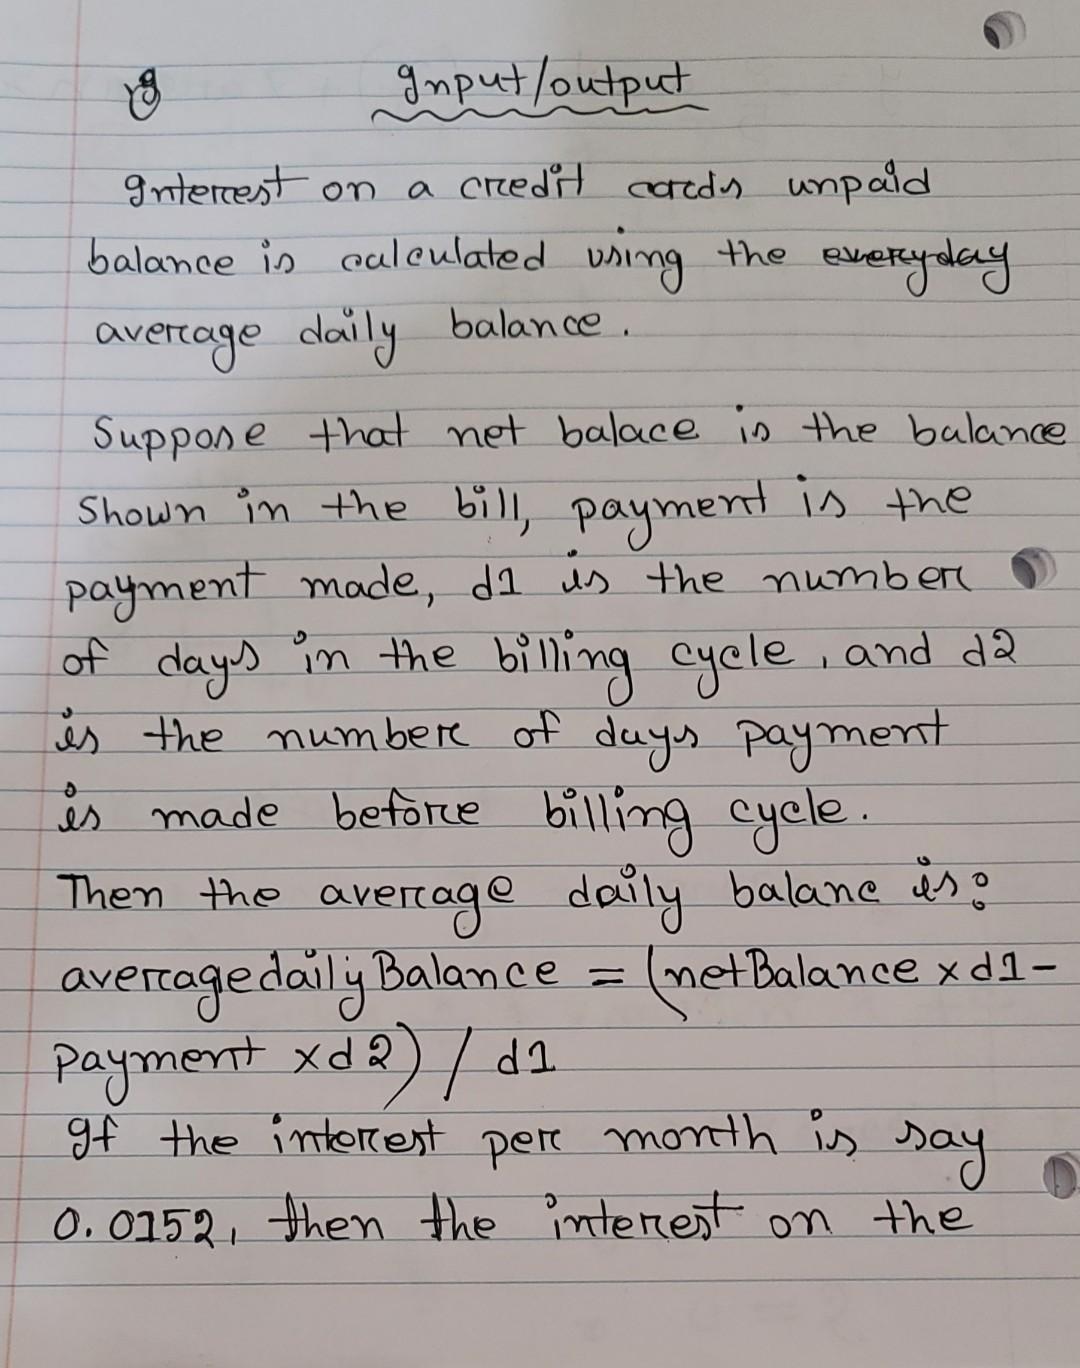 Input/output
Interest on a credit cards unpaid
balance is calculated using the everyday
average daily balance.
Suppose that net balace is the balance
Shown in the bill, payment is the
payment made, d1 is the number
of days in the billing cycle, and d2
is the number of days payment
is made before billing cycle.
Then the average daily balanc is:
averagedailyBalance = (netBalance x d1 -
Payment x d2) / d1
If the interest per month is say
0.0152, then the interest on the